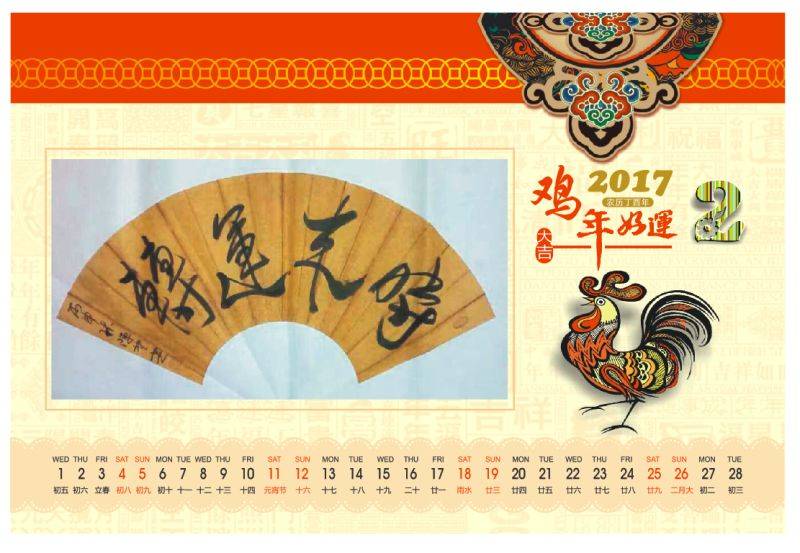 2017
农历丁酉年
2
鸡年好運
大吉
運
WED THU FRI SAT SUN MON TUE WED THU FRI SAT SUN MON TUE WED THU FRI SAT SUN MON TUE WED THU FRI SAT SUN MON TUE
1 2 3 4 5 6 7 8 9 10 11 12 13 14 15 16 17 18 19 20 21 22 23 24 25 26 27 28
初五 初六 立春 初八 初九 初十 十一 十二 十三 十四 元宵节 十六 十七 十八 十九 二十 廿一 雨水 廿三 廿四 廿五 廿六 廿七 廿八 廿九 二月大 初二 初三